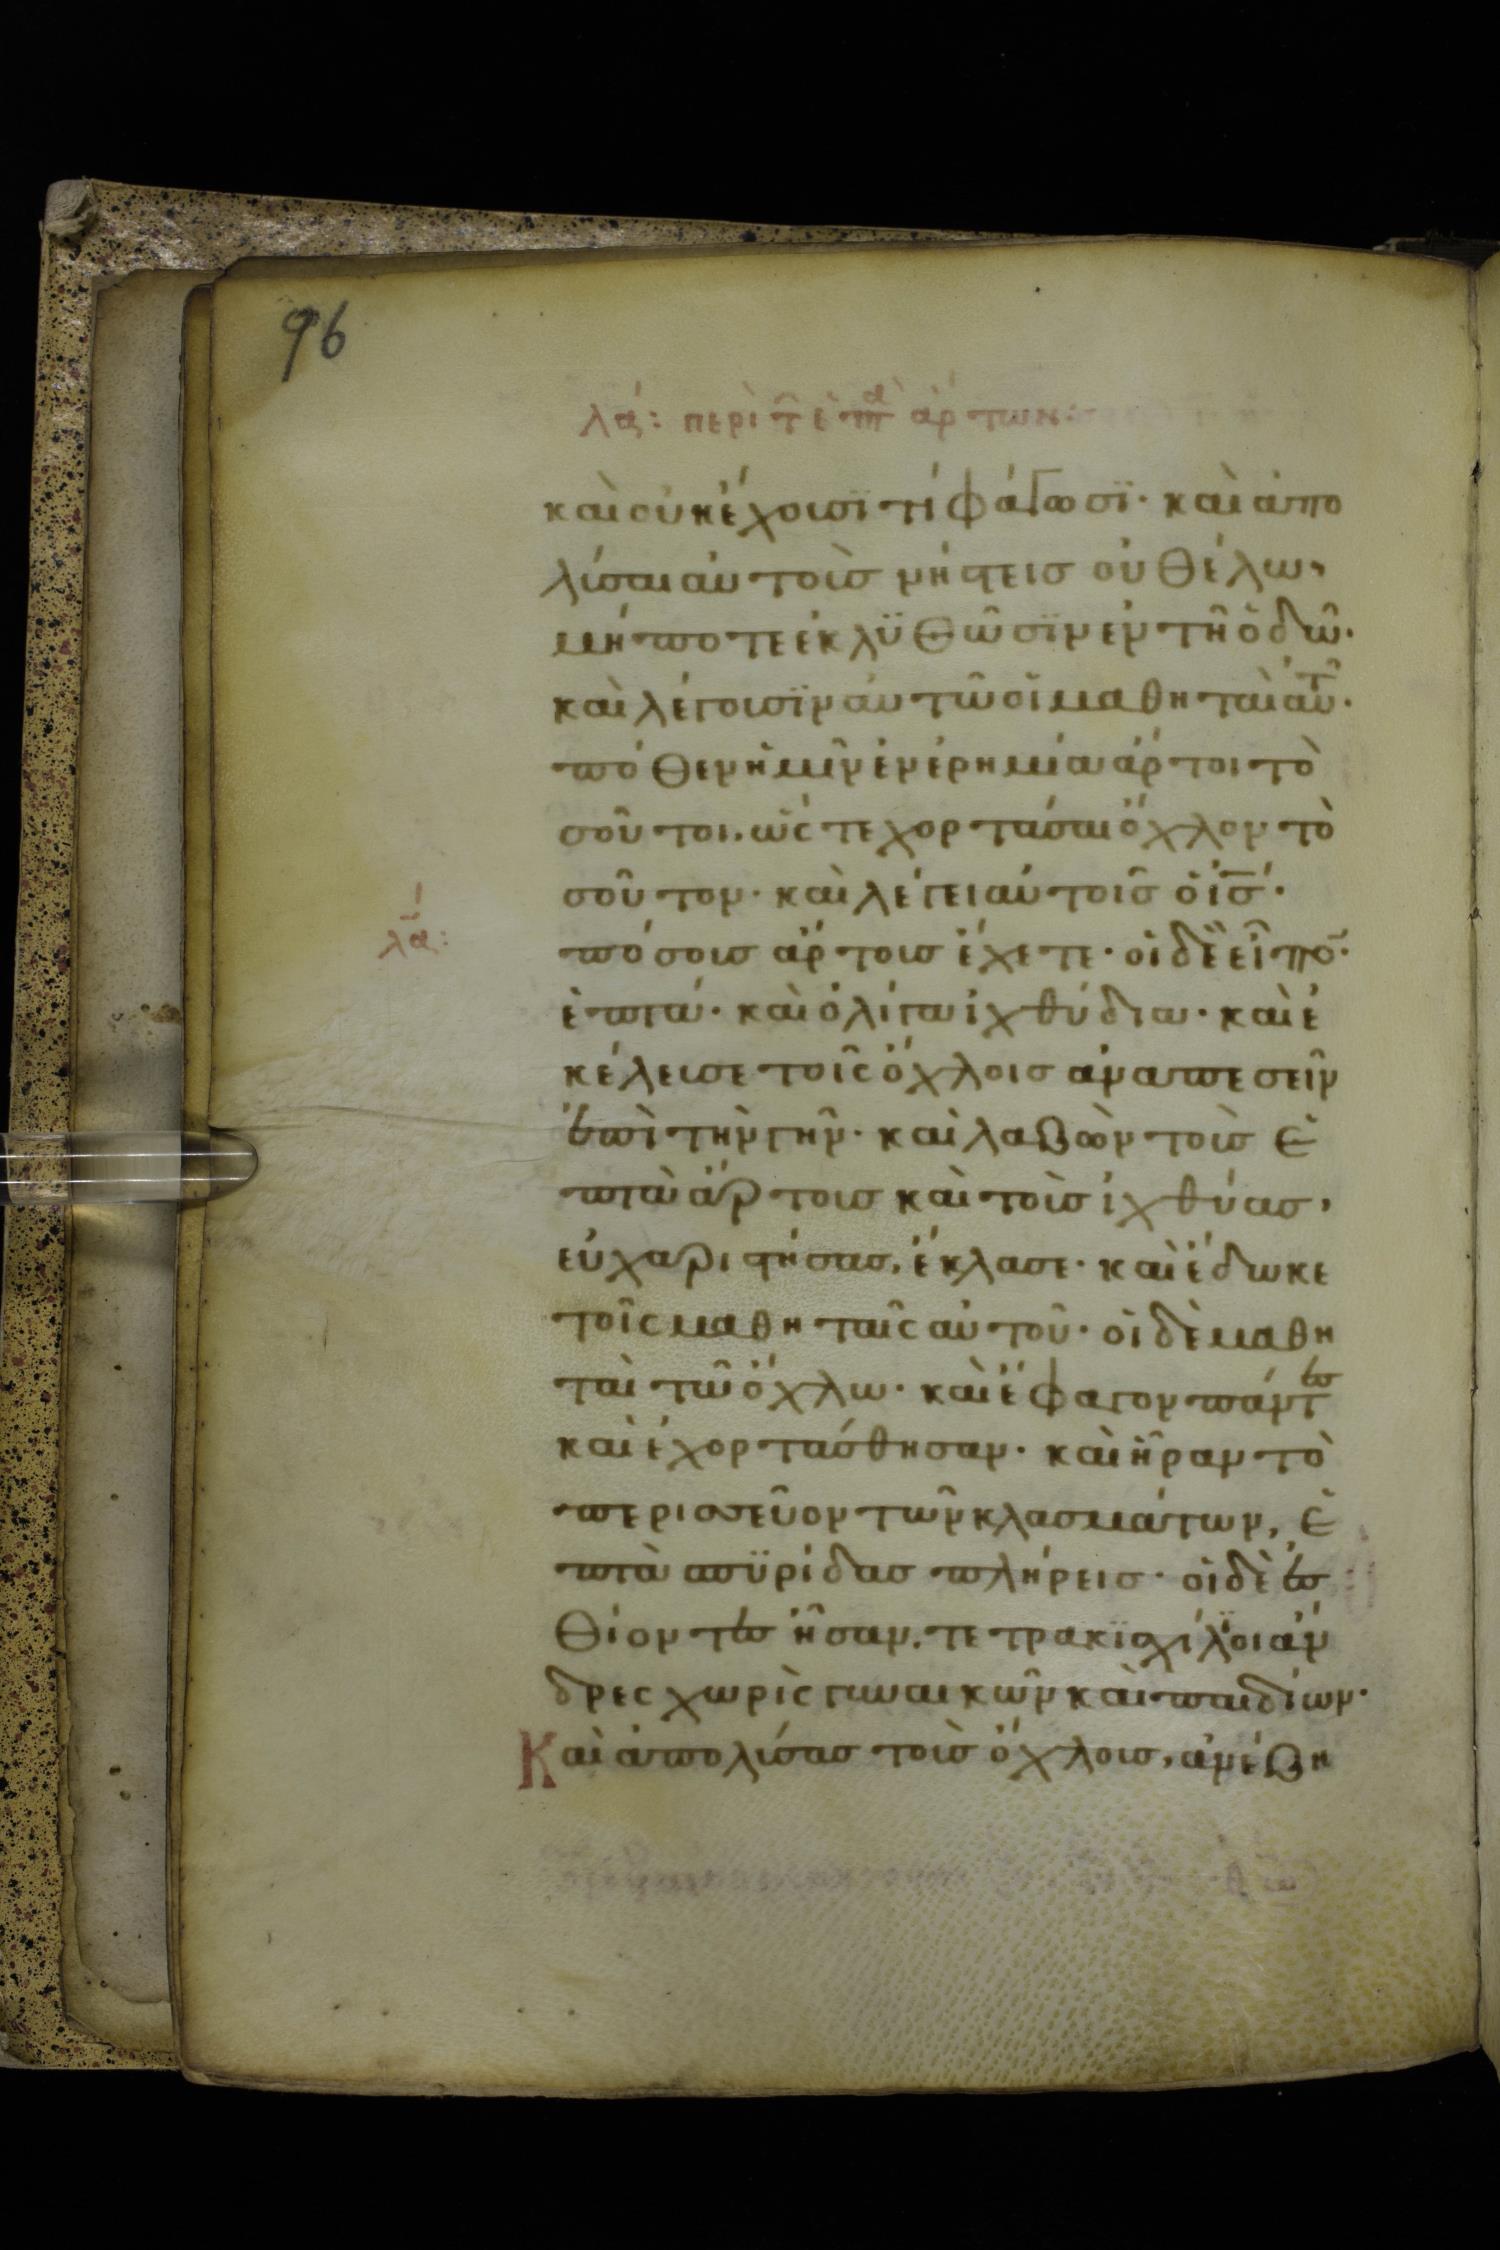 96
λα: περὶ τ̂ ἑπτὰ ἄρτων:
καὶ οὐκ ἔχουσϊ τί φάγωσϊ· καὶ ἀπο
λύσαι αὐτοὺσ νήστεισ οὐ θέλω,
μήποτε ἐκλϋθῶσϊν ἐν τῆ ὁδῶ·
καὶ λέγουσϊν αὐτῶ οἱ μαθηταὶ αὐτ̂·
πόθεν ἡμῖν ἐν ἐρημία ἄρτοι το
σοῦτοι, ὥςτε χορτάσαι ὄχλον το
σοῦτον· καὶ λέγει αὐτοῖσ ὁ ἰσ̄·
λα:
πόσουσ ἄρτουσ ἔχετε· οἱ δὲ εἶπο̄·
ἑπτά· καὶ ὀλίγα ἰχθύδια· καὶ ἐ
κέλευσε τοῖς ὄχλοισ ἀναπεσεῖν
ἐπὶ τὴν γῆν· καὶ λαβὼν τοὺσ ἑ
πτὰ ἄρτουσ καὶ τοὺσ ἰχθύασ,
εὐχαριστήσασ, ἔκλασε· καὶ ἔδωκε
τοῖς μαθηταῖς αὐτοῦ· οἱ δὲ μαθη
ταὶ τῶ ὄχλω· καὶ ἔφαγον πάντεσ
καὶ ἐχορτάσθησαν· καὶ ἦραν τὸ
περισσεῦον τῶν κλασμάτων, ἑ
πτὰ σπϋρίδασ πλήρεισ· οἱ δὲ ἐσ
θίοντεσ ἦσαν, τετρακϊσχίλϊοι ἄν
δρες χωρὶς γυναικῶν καὶ παιδίων·
Καὶ ἀπολύσασ τοὺσ ὄχλουσ, ἀνέβη